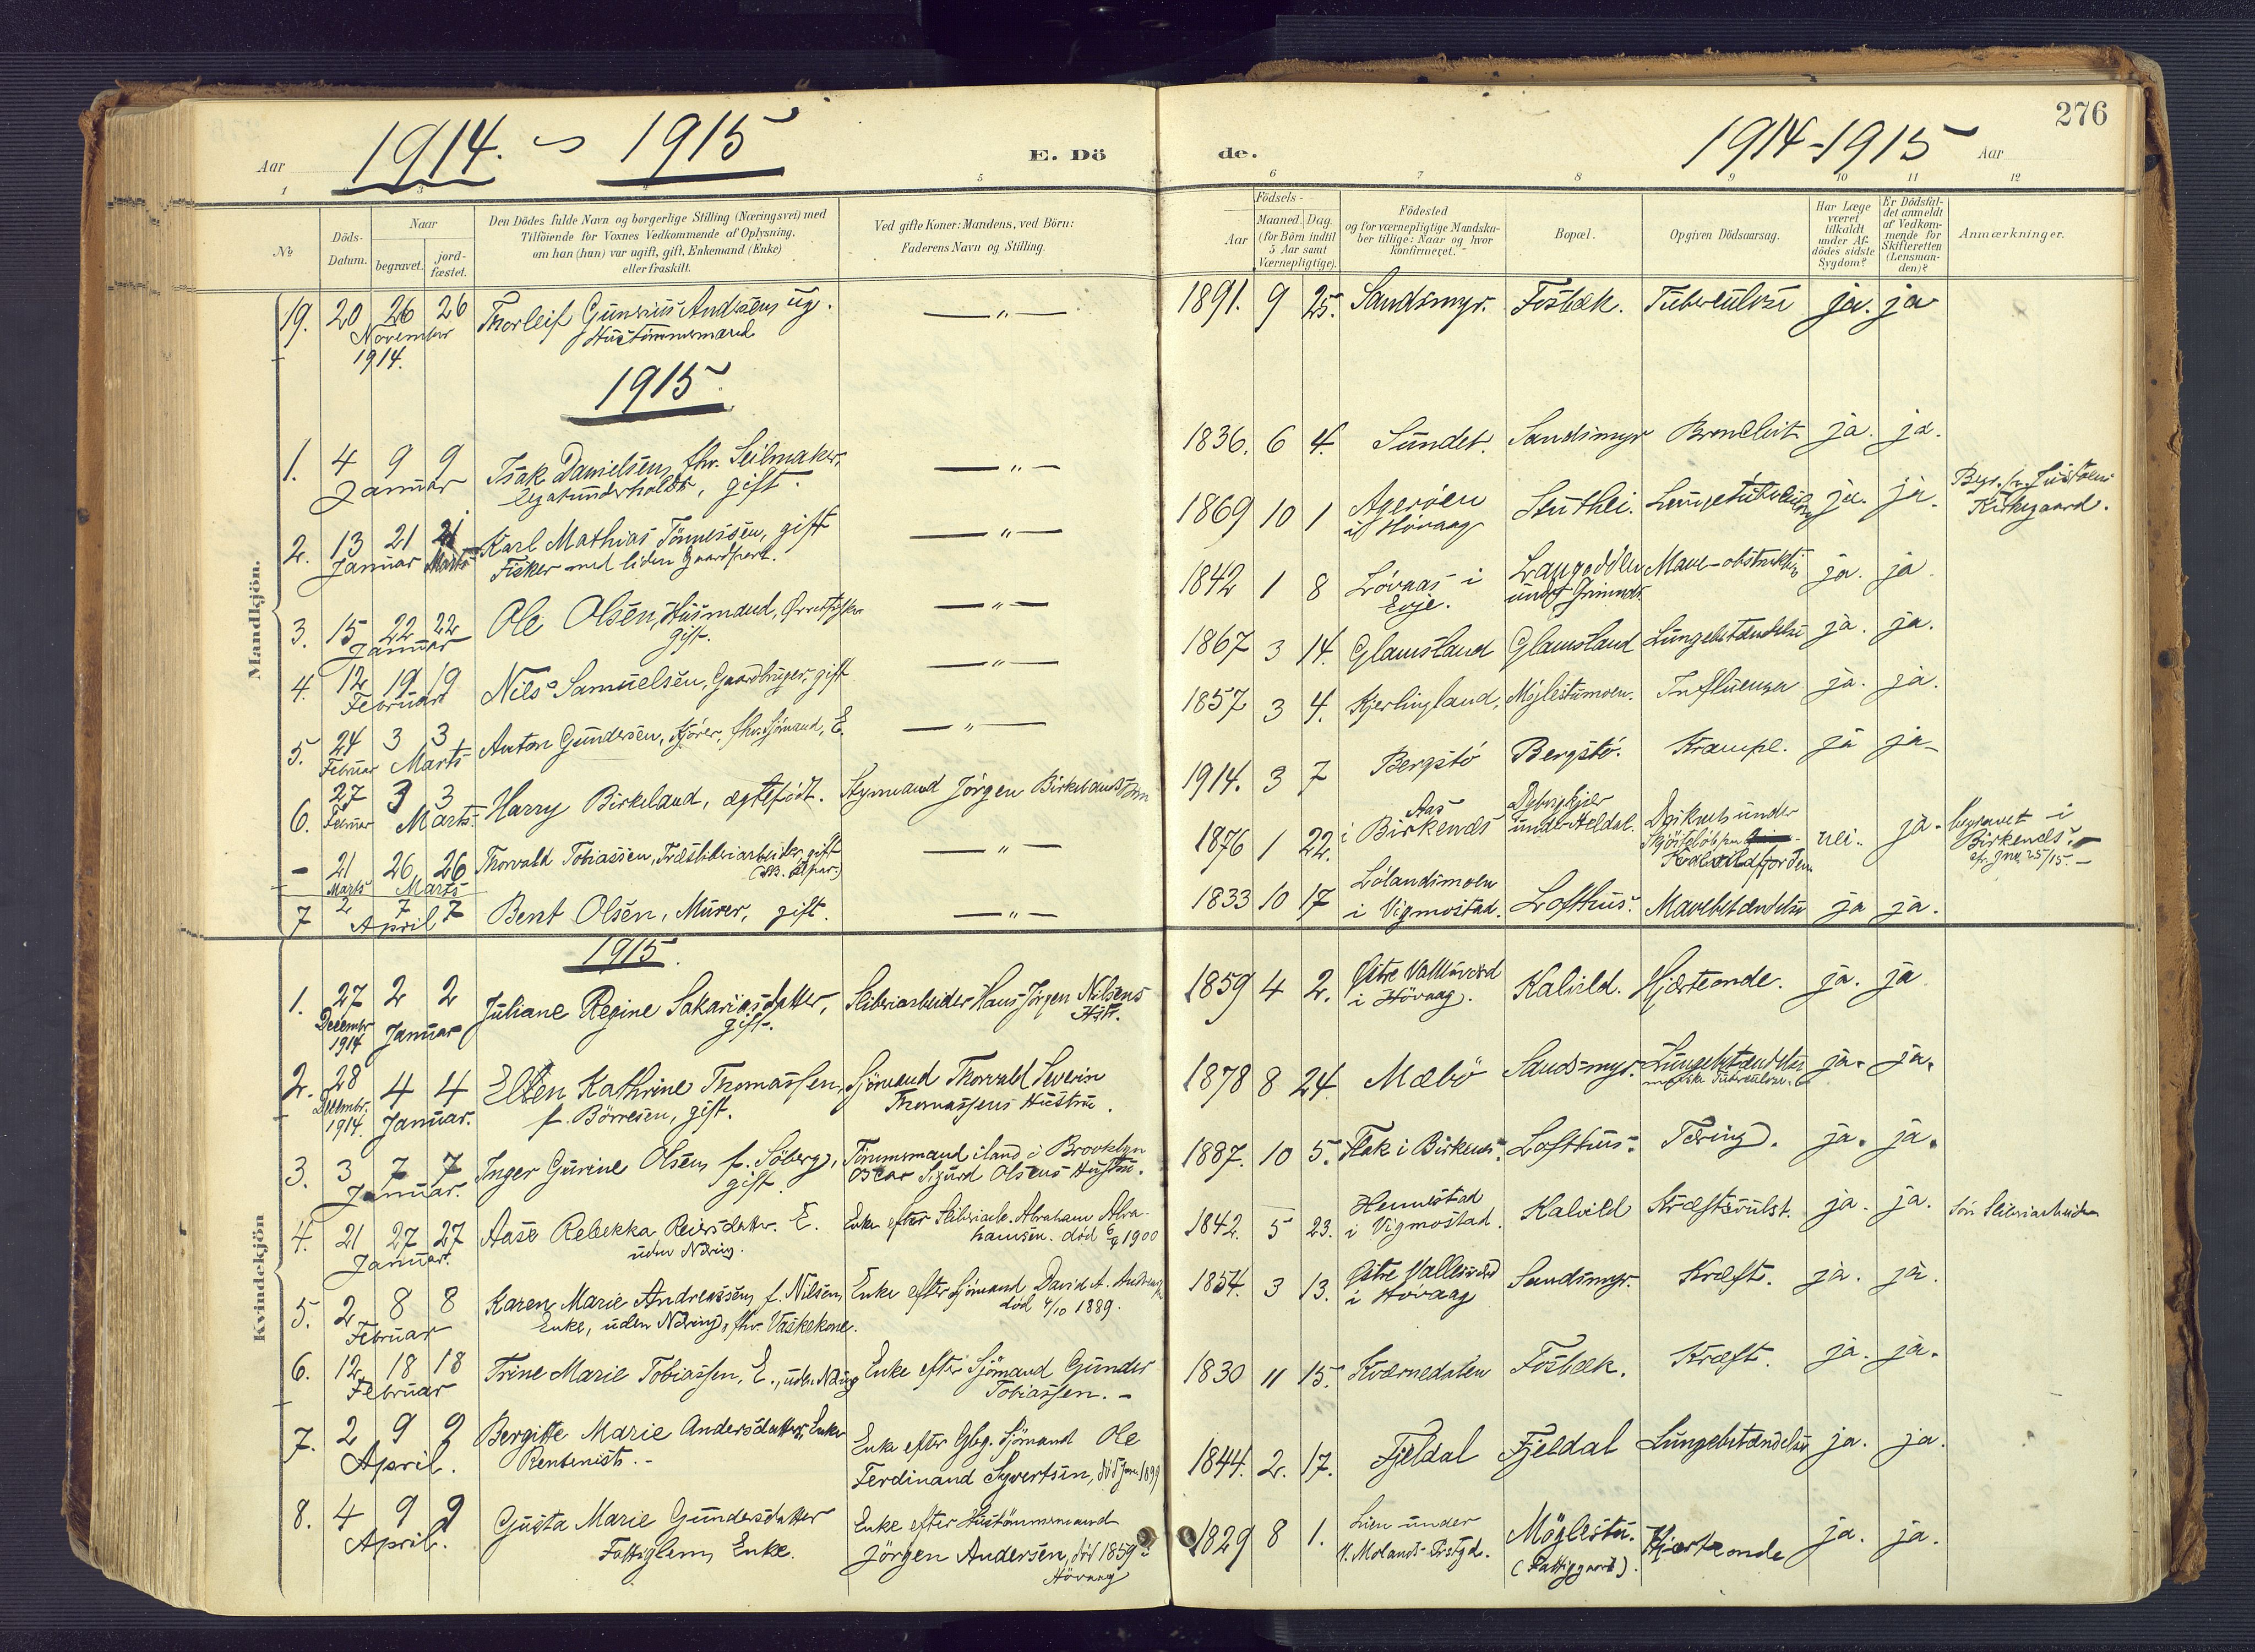 276
1914. - 1915
E. Dö
de.
1914-1915
Aar
Aar
1 3 4 5
6 7 8 9 10 11 12
No
Döds-Datum.
Naar
begravet.
jord-fæstet.
Den Dödes fulde Navn og borgerlige Stilling (Næringsvei) med
Tilföiende for Voxnes Vedkommende af Oplysning,
om han (hun) var ugift, gift, Enkemand (Enke)
eller fraskilt.
Ved gifte Koner: Mandens, ved Börn:
Faderens Navn og Stilling.
Födsels-
Aar
Maaned. Dag.
(for Börn indtil
5 Aar samt
Værnepligtige).
Födested
og for værnepligtige Mandska-
ber tillige: Naar og hvor
konfirmeret.
Bopæl.
Opgiven Dödsaarsag.
Har Læge
været
tilkaldt
under Af-
dödes sidste
Sygdom?
Er Dödsfal-
det anmeldt
af Vedkom-
mende for
Skifteretten
(Lensman-
den)?
Anmærkninger.
Mandkjön.
19. 20 26 26 Thorleif Gunerius Andersen, ug. — " — 1891. 9 25. Sandsmyr. Fosbæk. Tuberculose ja. ja
November Hustömmermand
1914.
1915
1. 4 9 9 Isak Danielsen, fhv. Seilmaker, — " — 1836. 6 4. Sundet. Sandsmyr Bronchit ja. ja.
Januar legatunderholdt, gift.
2. 13 21 21 Karl Mathias Tönnessen, gift — " — 1869 10 1 Ageröen Stuthei. Lungetuberculose ja. ja. Begr. fr. Justöens
Januar Marts Fisker med liden Gaardpart. i Hövaag Kirkegaard.
3. 15 22 22 Ole Olsen, Husmand, gift. — " — 1842 1 8 Lövaas i Mave-obstruktion ja. ja
Januar Evje. under Grimnes.
4. 12 19 19 Nils Samuelsen, Gaardbruger, gift — " — 1867 3 14. Glamsland Glamsland Lungebetændelse ja. ja.
Februar
5. 24 3 3 Anton Gundersen, Kjörer, fhv. Sjömand, E. — " — 1857 3 4. Kjerlingland. Möglestumoen. Influenza ja. ja.
Februar Marts
6. 27 3 3 Harry Birkeland, ægtefödt. Styrmand Jörgen Birkelands Sön 1914. 3 7 Bergstö Bergstö. Krampe. ja ja
Februar Marts
- 21 26 26 Thorvald Tobiassen, Træsliberiarbeider, gift — " — 1876 1 22. Aas i Birkenæs under Heldal. nei. ja. begravet i
Marts Marts Birkenes.
Kalvildfjorden
7 2 7 7 Bent Olsen, Murer, gift. — " — 1833 10 17 Lölandsmoen Lofthus. Mavebetændelse ja ja.
April i Vigmostad.
1915.
Kvindekjön
1. 27 2 2 Juliane Regine Sakariasdatter, Sliberiarbeider Hans Jörgen Nilsens 1859 4 2. Ytre Vallesverd Kalvild. Hjerteonde. ja. ja
Decembr Januar gift. Hstr. i Hövaag.
1914
2. 28 4 4 Ellen Kathrine Thomassen, Sjömand Thorvald Severin 1878 8 24. Mæbö Sandsmyr. Lungebetændelse ja. ja.
Decembr. Januar. f. Börresen, gift. Thomassens Hustru. Tuberculose.
1914.
3. 3 7 7 Inger Gurine Olsen, f. Söberg, Tömmermand iland i Brooklyn 1887. 10 5. Flak i Birkenes. Lofthus. Tæring. ja. ja.
Januar. gift. Oscar Sigurd Olsens Hustru.
4. 21 27 27 Aase Rebekka Reiersdatter. E. Enke efter Sliberiarb. Abraham Abra- 1842. 5 23. Hennestad Kalvild Kræftsvulst. ja. ja. Sön Sliberiarbeider
Januar. uden Næring. hamsen. död 1900 i Vigmostad.
5. 2 8 8 Karen Marie Andreassen, f. Nilsen, Enke efter Sjömand David A. Andreassen 1854. 3 13. Ytre Vallesverd Sandsmyr. Kræft. ja. ja.
Februar Enke, uden Næring, fhv. Vaskekone. död 4/10 1889. i Hövaag
6. 12 18 18 Trine Marie Tobiassen, E., uden Næring Enke efter Sjömand Gunder 1830 11 15. Kværnedalen Fosbæk. Kræft. ja. ja.
Februar Tobiassen. -
7. 2 9 9 Bergitte Marie Andersdatter, Enke Enke efter Gbg. Sjömand Ole 1844. 2. 17. Fjeldal Fjeldal Lungebetændelse ja. ja.
April. Rentenist. - Ferdinand Syvertsen, död Jan. 1899
8. 4 9 9 Gusta Marie Gundersdatter Enke efter Hustömmermand 1829 8 1. Lien under Möglestu. Hjerteonde ja. ja.
April. Fattiglem, Enke. Jörgen Andersen, död 1859 V. Molands Prstgd. (Fattiggaard).
Hövaag